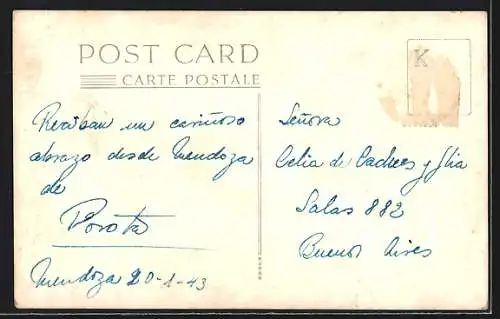 POST CARD
CARTE POSTALE
K
Reciban un cariñoso
abrazo desde Mendoza
de
Porota
Mendoza 20-1-43
Señora
Celia de y flia
Salas 882
Buenos Aires